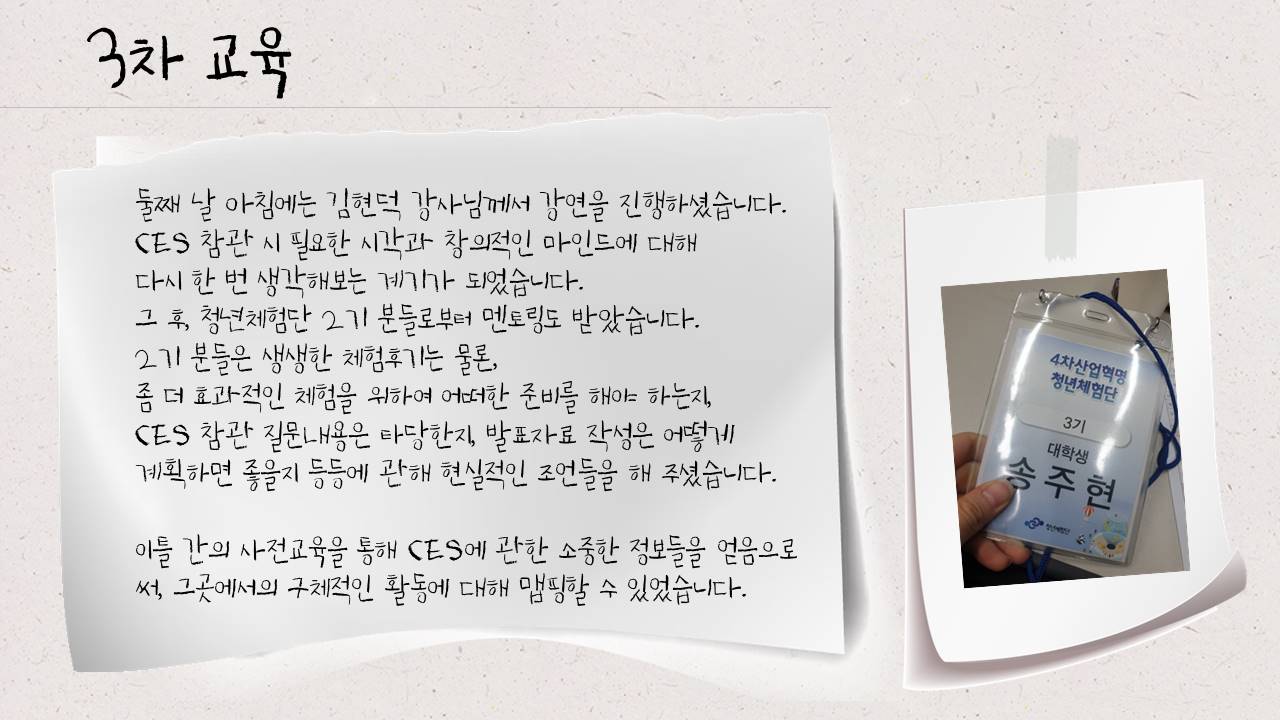 3차 교육
둘째 날 아침에는 김현덕 강사님께서 강연을 진행하셨습니다.
CES 참관 시 필요한 시각과 창의적인 마인드에 대해
다시 한 번 생각해보는 계기가 되었습니다.
그 후, 청년체험단 2기 분들로부터 멘토링도 받았습니다.
2기 분들은 생생한 체험후기는 물론,
좀 더 효과적인 체험을 위하여 어떠한 준비를 해야 하는지,
CES 참관 질문내용은 타당한지, 발표자료 작성은 어떻게
계획하면 좋을지 등등에 관해 현실적인 조언들을 해 주셨습니다.
이틀 간의 사전교육을 통해 CES에 관한 소중한 정보들을 얻음으로
써, 그곳에서의 구체적인 활동에 대해 맵핑할 수 있었습니다.
4차산업혁명
청년체험단
3기
대학생
송주현
청년체험단